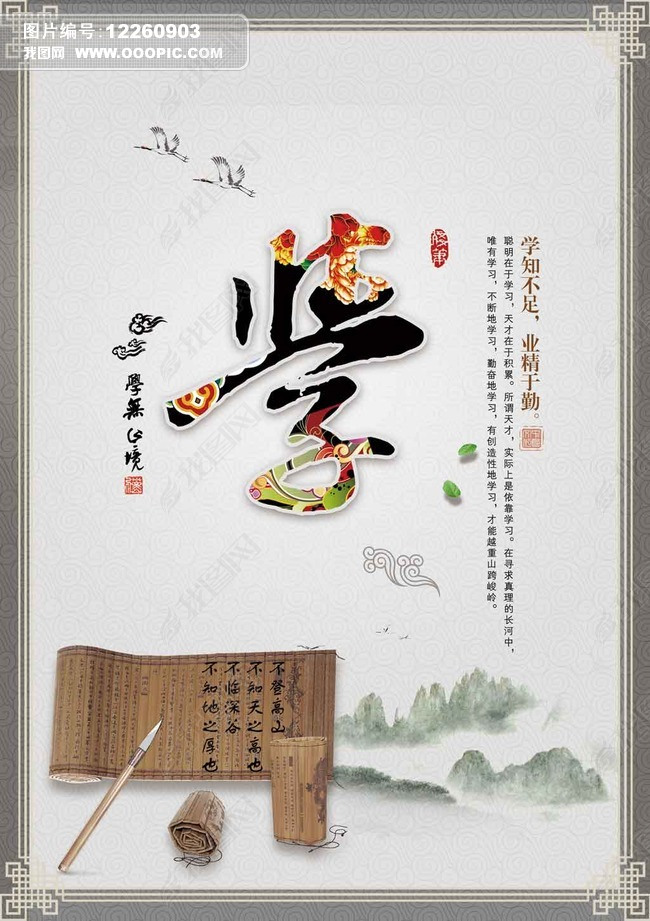 图片编号:12260903
我图网 www.OOOPIC.com
学
学知不足,业精于勤。
聪明在于学习,天才在于积累。所谓天才,实际上是依靠学习。在寻求真理的长河中,
唯有学习,不断地学习,勤奋地学习,有创造性地学习,才能越重山跨峻岭。
學無止境
不登高山
不知天之高也
不临深谷
不知地之厚也